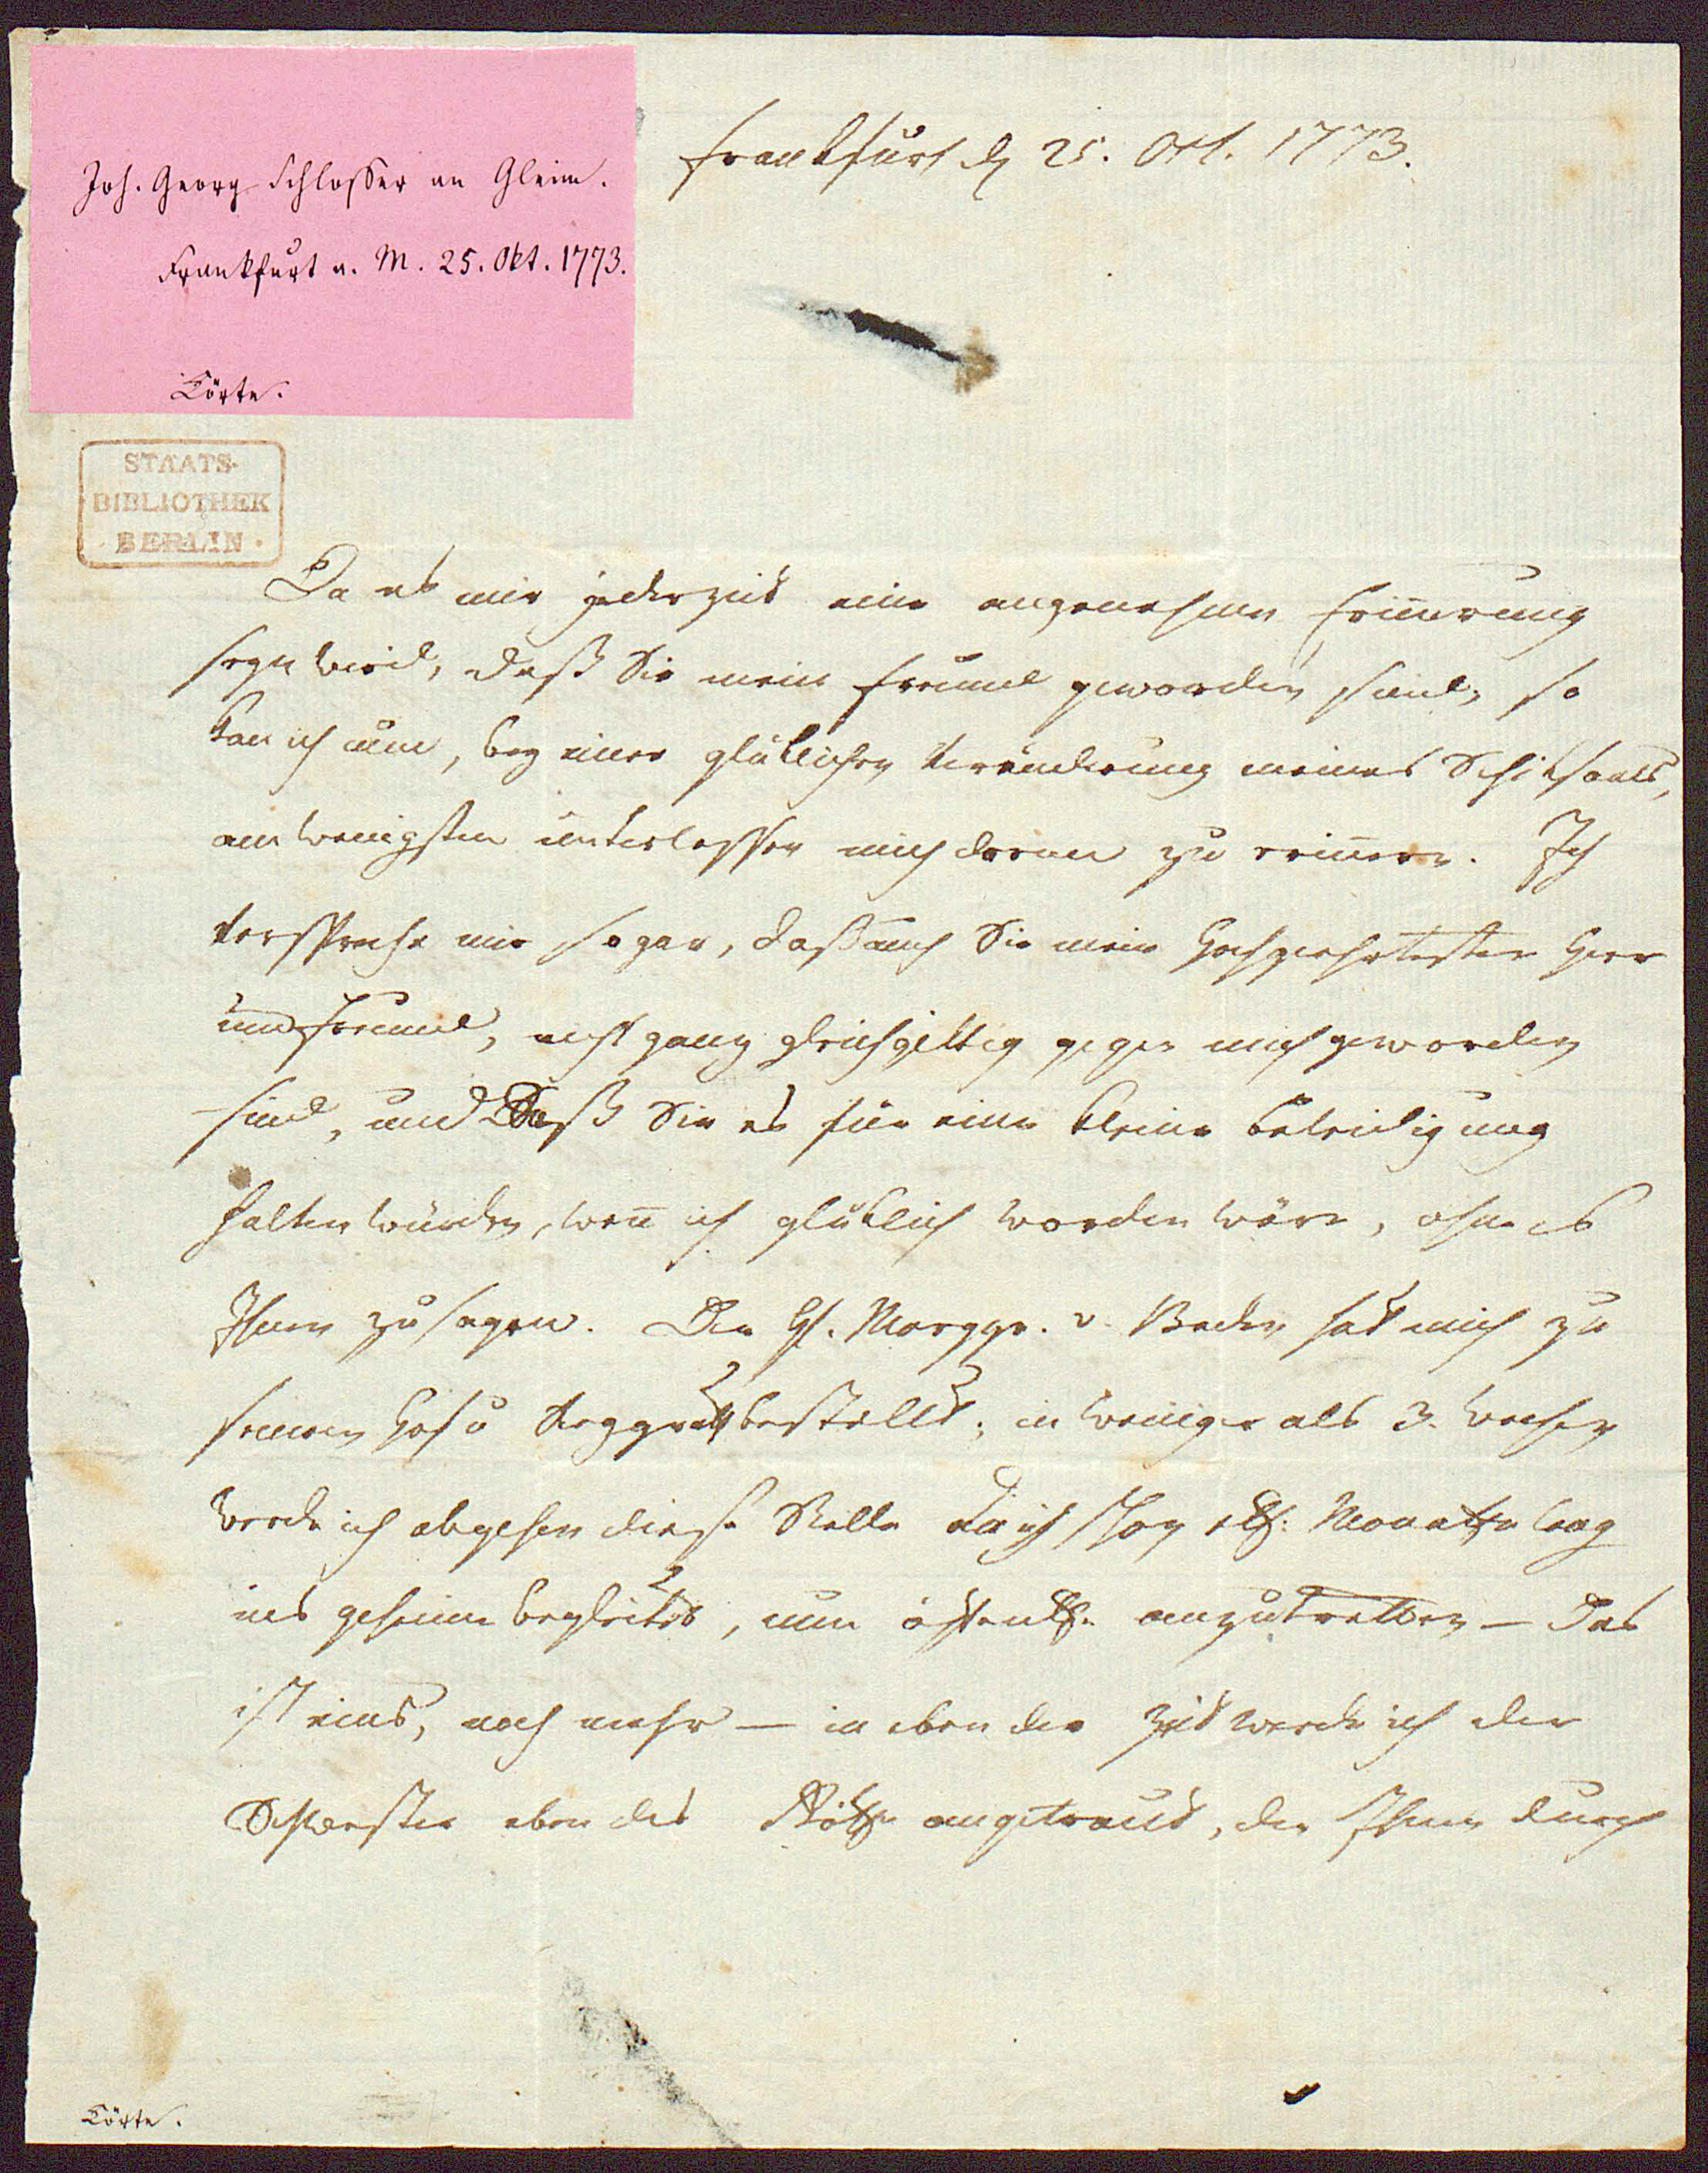 Joh. Georg Schlosser an Gleim.
Frankfurt a. M. 25. Okt. 1773.
Körte.
Frankfurt d. 25. Oct. 1773.
STAATS-
BIBLIOTHEK
BERLIN
Da es mir jederzeit eine angenehme Erinnerung
seyn wird, daß Sie mein Freund geworden sind, so
kan ich nun, bey einer glüklichen Veränderung meines Schiksaals,
am wenigsten unterlassen mich daran zu erinnern. Ich
verspreche mir sogar, daß auch Sie mein Hochgeehrtester Herr
und Freund, nicht ganz gleichgültig gegen mich geworden
sind, und daß Sie es für eine kleine Beleidigung
halten würden, wen̄ ich glüklich worden wäre, ohne es
Ihnen zu sagen. Der H. Marggr. v. Baden hat mich zu
seinem Hof u Regg bestellt; in weniger als 3. Wochen
werde ich abgehen diese Stelle die ich schon Monathe lang
ins geheim begleitete, nun öffentl. anzutretten – Das
ist eins, noch mehr – in eben der Zeit werde ich der
Schwester eben des angetraut, der Ihnen durch
Körte.